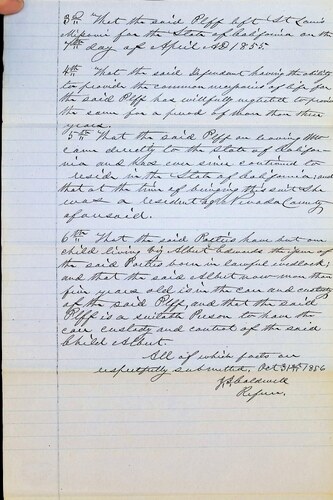 3rd That the said Plff left St Louis
Missouri for the State of California on the
7th day of April AD 1855
4th That the said Defendant having the ability
to provide the common necessaries of life for
the said Plff has willfully neglected to provide
the same for a period of more than three
years.
5th That the said Plff on leaving Mo
came directly to the state of Califor-
nia and has ever since continued to
reside in the State of California; and
that at the time of bringing this suit She
was a resident of the Nevada County
aforesaid.
6th That the said Parties have but one
child living viz Albert Edwards the issue of
the said Parties born in lawful wedlock;
and that the said Albert now more than
five years old is in the care and custody
of the said Plff, and that the said
Plff is a suitable Person to have the
care custody and control of the said
Child Albert.
All of which facts are
respectfully submitted. Oct 31st 1856
Caldwell
Referee.